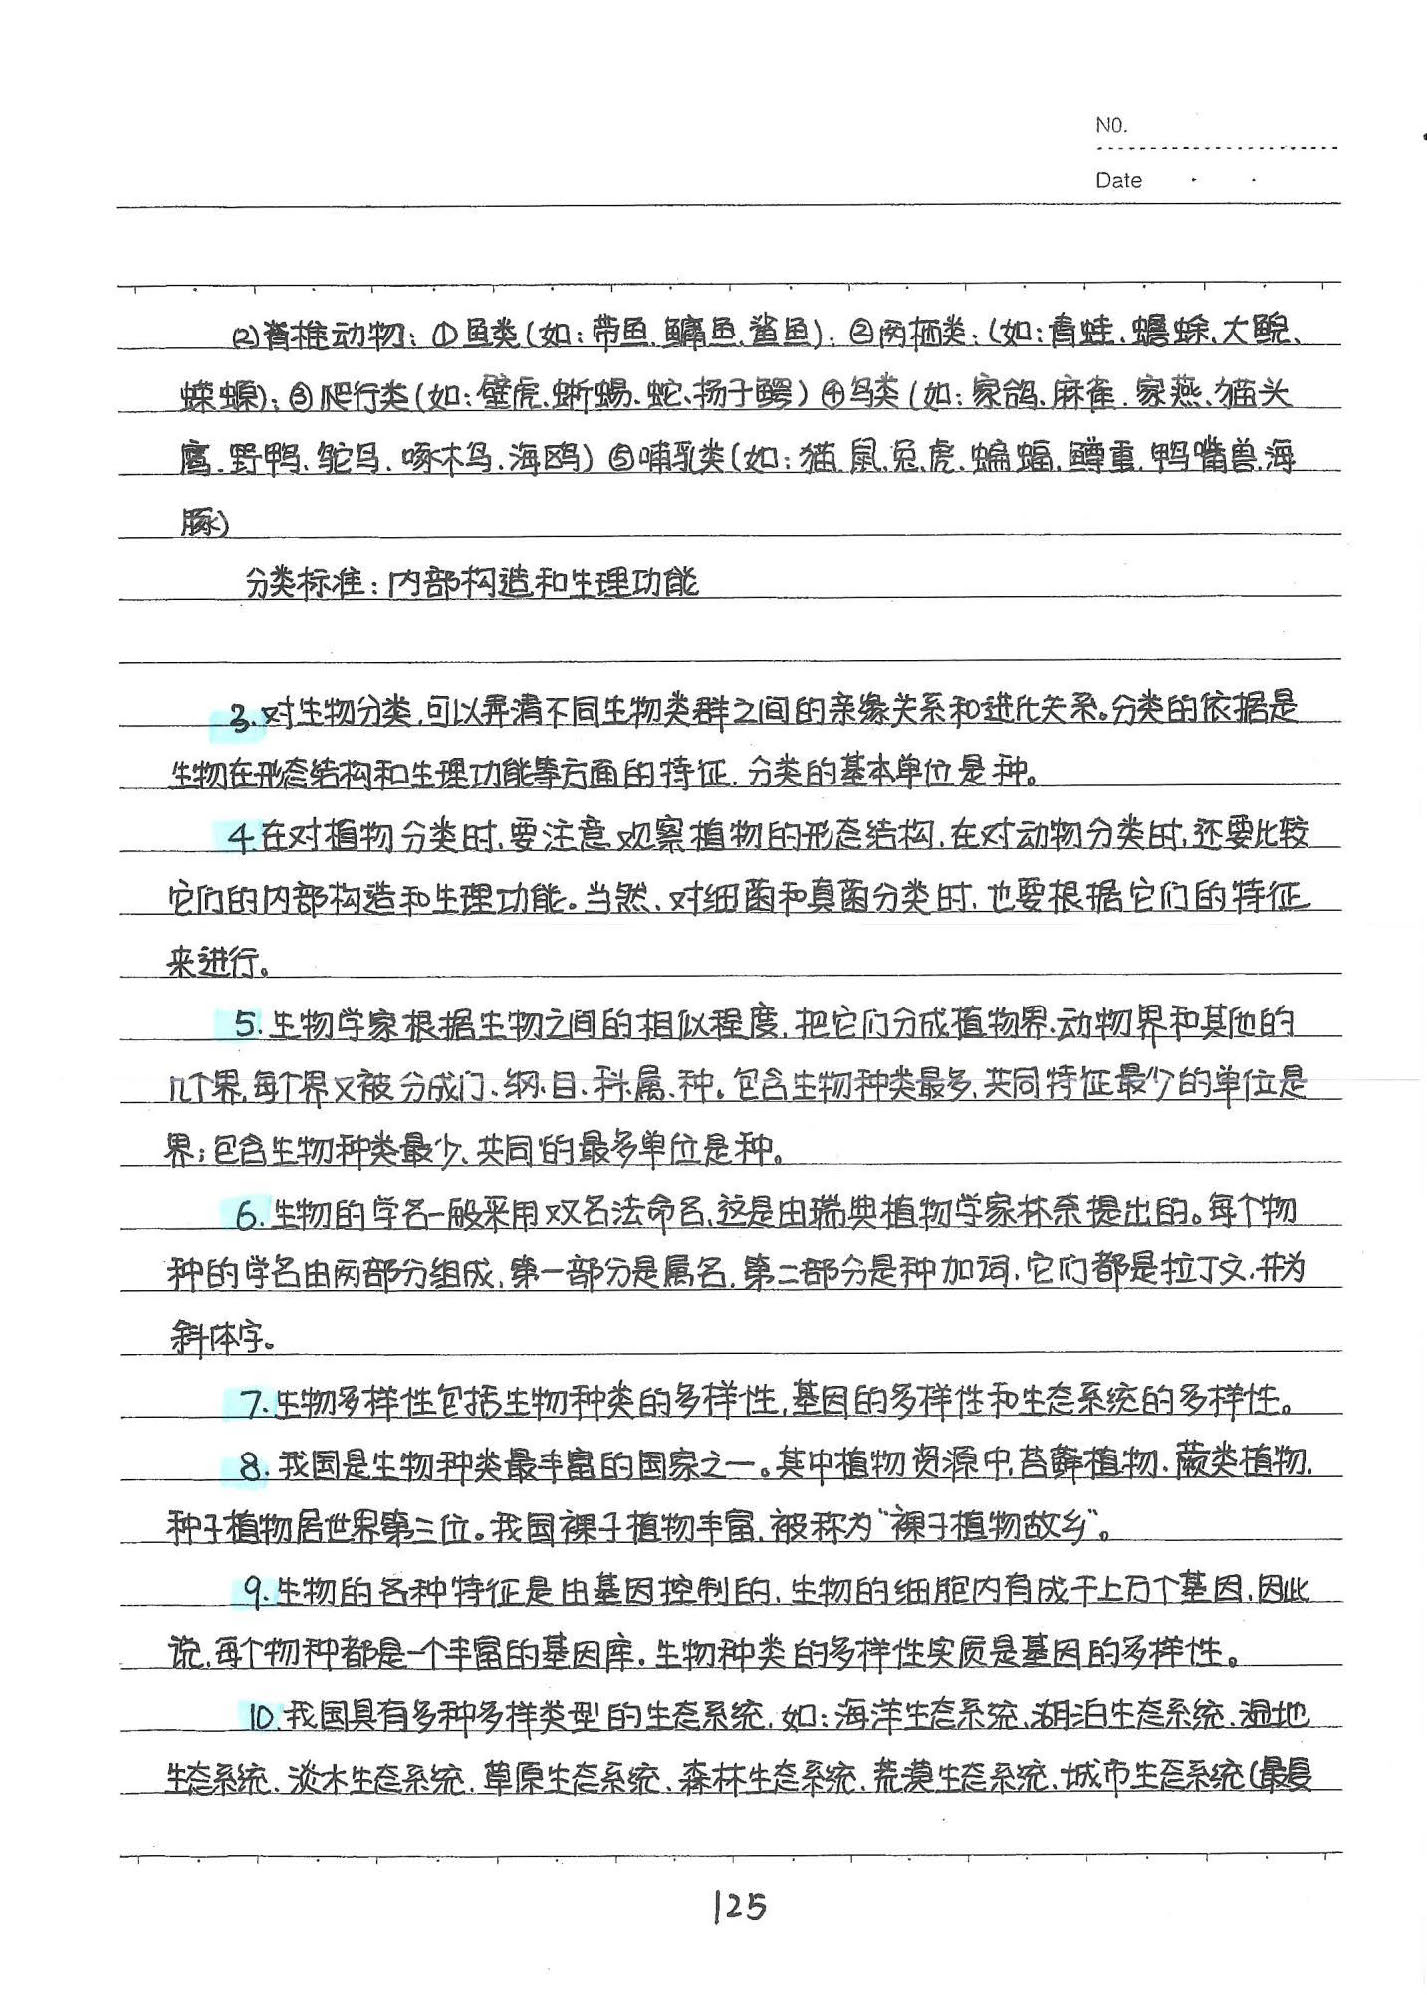 NO.
Date
(2)脊椎动物：①鱼类(如：带鱼、鳙鱼、鲨鱼)．②两栖类：(如：青蛙、蟾蜍、大鲵、
蝾螈)；③爬行类(如：壁虎、蜥蜴、蛇、扬子鳄)④鸟类(如：家鸽、麻雀、家燕、猫头
鹰、野鸭、鸵鸟、啄木鸟、海鸥)⑤哺乳类(如：猫、鼠、兔、虎、蝙蝠、鸭嘴兽、海
豚)
分类标准：内部构造和生理功能
3.对生物分类，可以弄清不同生物类群之间的亲缘关系和进化关系。分类的依据是
生物在形态结构和生理功能等方面的特征．分类的基本单位是种。
4.在对植物分类时，要注意观察植物的形态结构，在对动物分类时，还要比较
它们的内部构造和生理功能。当然、对细菌和真菌分类时，也要根据它们的特征
来进行。
5.生物学家根据生物之间的相似程度，把它们分成植物界、动物界和其他的
几个界，每个界又被分成门、纲、目、科、属、种。包含生物种类最多，共同特征最少的单位是
界；包含生物种类最少、共同的最多单位是种。
6.生物的学名一般采用双名法命名，这是由瑞典植物学家林奈提出的。每个物
种的学名由两部分组成，第一部分是属名，第二部分是种加词，它们都是拉丁文，并为
斜体字。
7.生物多样性包括生物种类的多样性，基因的多样性和生态系统的多样性。
8.我国是生物种类最丰富的国家之一。其中植物资源中，苔藓植物、蕨类植物，
种子植物居世界第三位。我国裸子植物丰富，被称为“裸子植物故乡”。
9.生物的各种特征是由基因控制的，生物的细胞内有成千上万个基因，因此
说，每个物种都是一个丰富的基因库．生物种类的多样性实质是基因的多样性。
10.我国具有多种多样类型的生态系统，如：海洋生态系统、湖泊生态系统、湿地
生态系统、淡水生态系统、草原生态系统、森林生态系统、荒漠生态系统、城市生态系统(最复
125